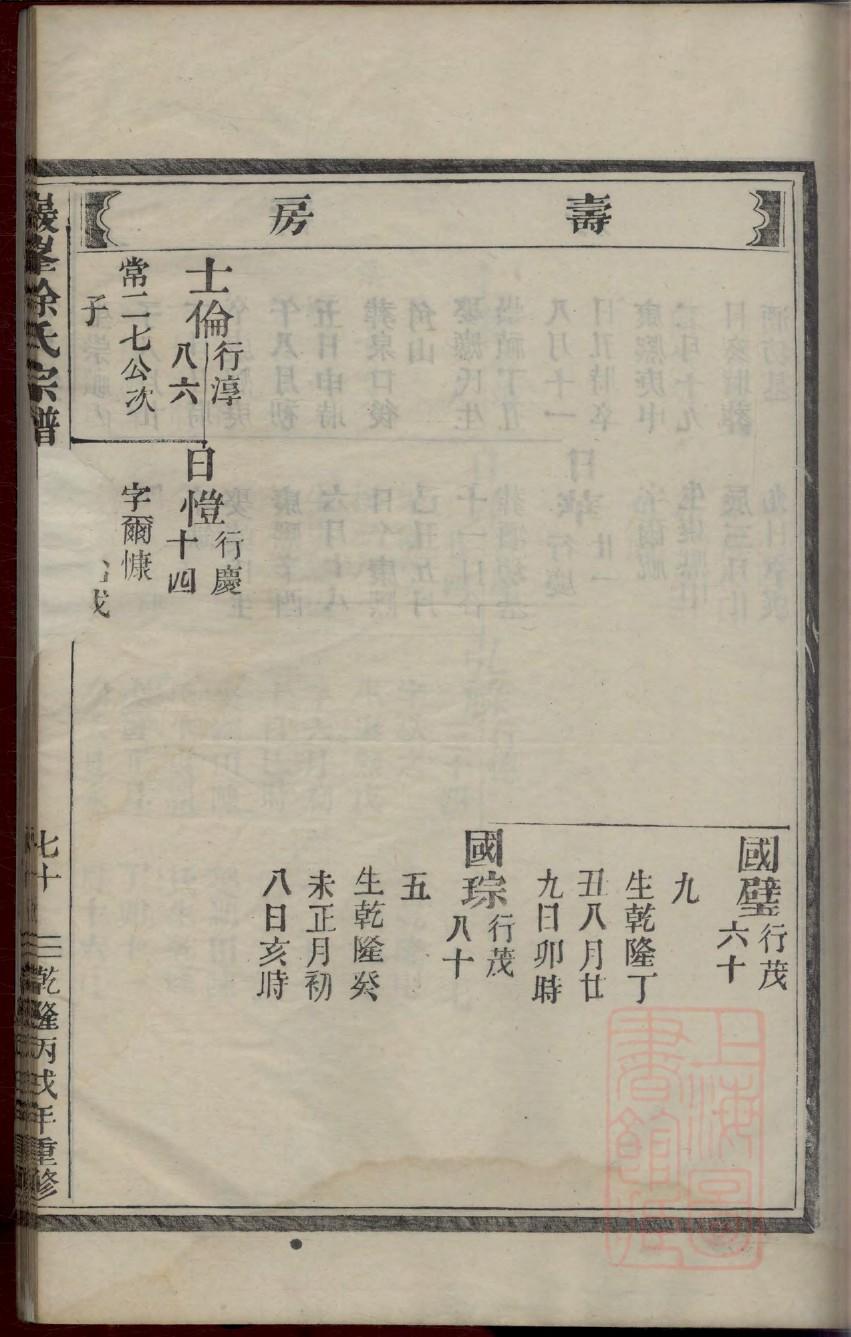 壽房
國璧行茂
六十
九
生乾隆丁
丑八月廿
九日卯時
國琮行茂
八十
五
生乾隆癸
未正月初
八日亥時
士倫行淳
八六
常二七公次
子
日愷行慶
十四
字爾慷
戌
巖峯徐氏宗譜
七十
乾隆丙戌年重修
上海圖書館藏